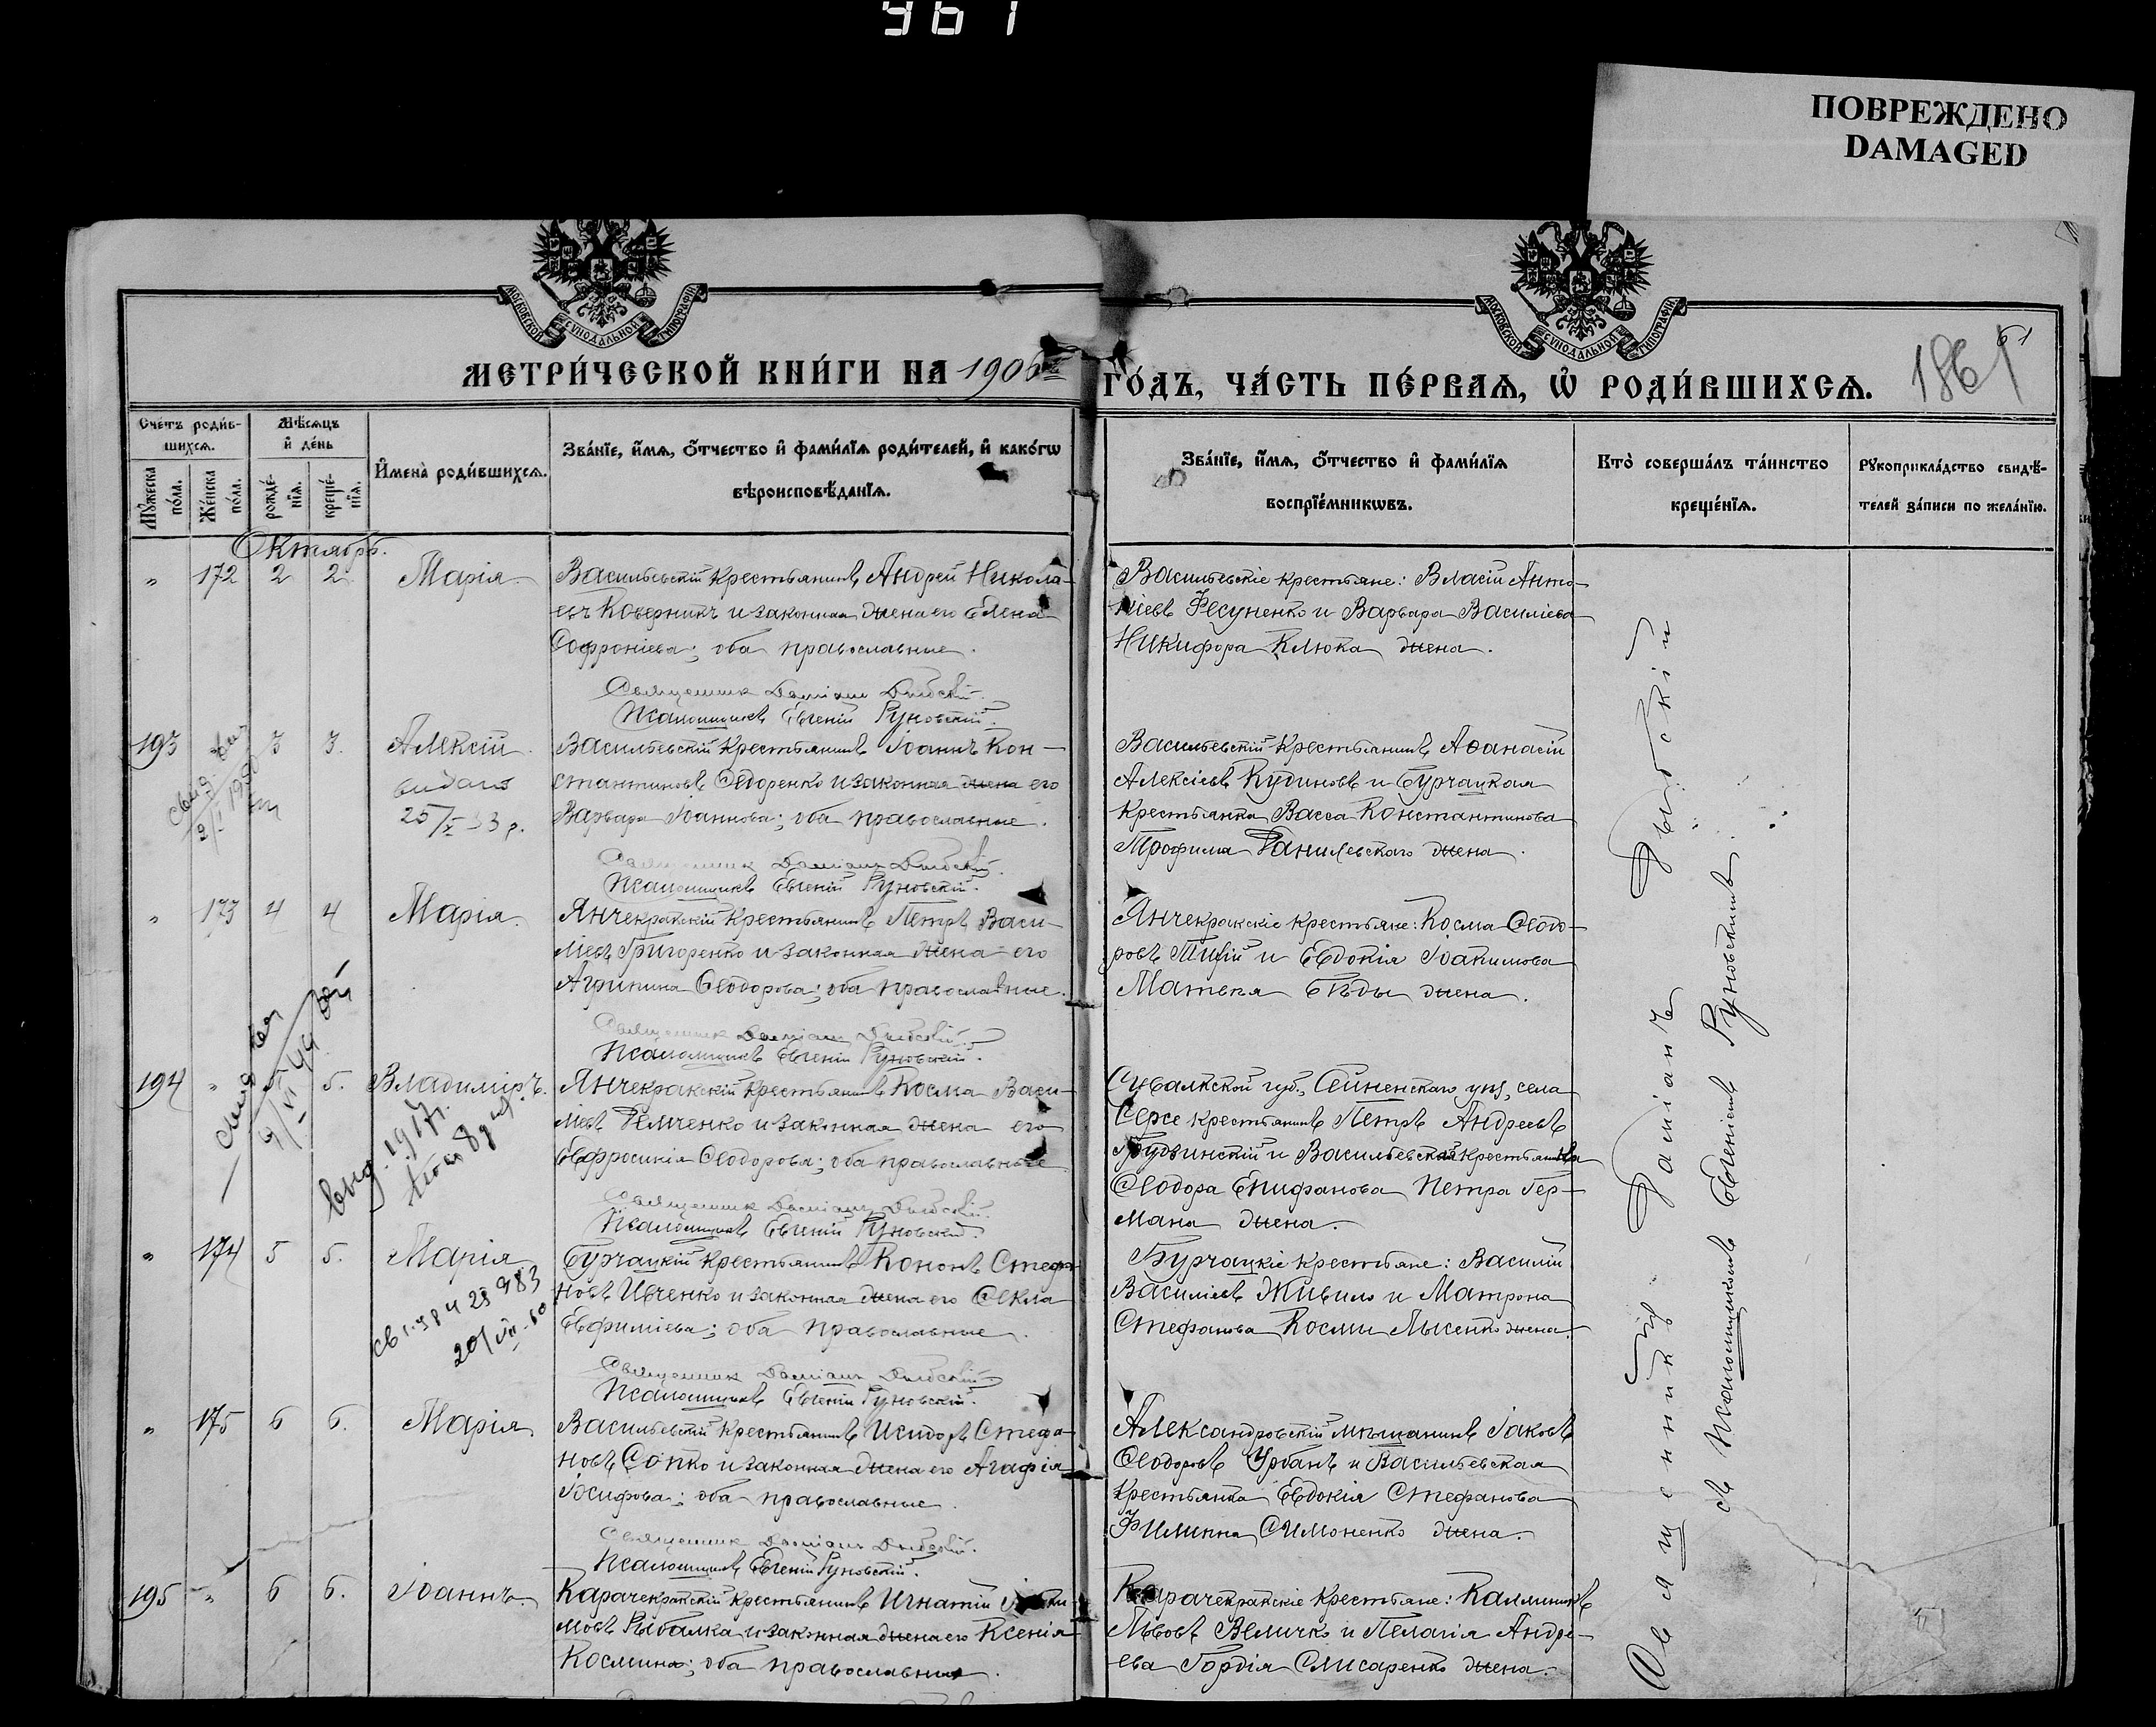 961
ПОВРЕЖДЕНО
DAMAGED
МОСКОВСКОЙ СУНОДАЛЬНОЙ ТИПОГРАФІИ
МОСКОВСКОЙ СУНОДАЛЬНОЙ ТИПОГРАФІИ
МЕТРИ́ЧЕСКОЙ КНИ́ГИ НА 1906й
ГО́ДЪ, ЧА́СТЬ ПЕ́РВАѦ, Ѡ РОДИ́ВШИХСѦ.
186
61
Сче́тъ роди́в-
шихсѧ.
Мѣ́сѧцъ
и҆ де́нь
Мꙋ́жеска по́ла.
Же́нска по́ла.
рожде́-
нїѧ.
креще́-
нїѧ.
И҆мена̀ роди́вшихсѧ.
Зва́нїе, и҆́мѧ, ѻ҆́тчество и҆ фами́лїѧ роди́телей, и҆ како́гѡ
вѣроисповѣ́данїѧ.
Зва́нїе, и҆́мѧ, ѻ҆́тчество и҆ фами́лїѧ
воспрїе́мникѡвъ.
Кто̀ соверша́лъ та́инство
креще́нїѧ.
Рꙋкоприкла́дство свидѣ́-
телей за́писи по жела́нїю.
Октябрь.
„ 172 2 2 Марія.
Васильевскій крестьянинъ Андрей Никола-
евъ Коверникъ и законная жена его Елена
Софроніева; оба православные.
Священник Даміан Дыбскій.
Псаломщикъ Евгеній Руновскій.
Васильевскіе крестьяне: Власій Анто-
ніевъ Фесуненко и Варвара Василіева
Никифора Клюка жена.
193 3 3. Алексій.
видано
25/X 33 р.
Васильевскій крестьянинъ Іоаннъ Кон-
стантиновъ Ѳедоренко и законная жена его
Варвара Іоаннова; оба православные.
Священник Даміан Дыбскій.
Псаломщикъ Евгеній Руновскій.
Васильевскій крестьянинъ Аѳанасій
Алексіевъ Кудиновъ и Бурчацкая
крестьянка Васса Константинова
Трофима Данилевскаго жена.
„ 173 4 4 Марія.
Янчекракскій крестьянинъ Петръ Васи-
ліевъ Григоренко и законная жена его
Агрипина Ѳеодорова; оба православные.
Священник Даміан Дыбскій.
Псаломщикъ Евгеній Руновскій.
Янчекракскіе крестьяне: Косма Ѳеодо-
ровъ и Евдокія Іоакимова
Матвея Бѣды жена.
194 „ 5. Владиміръ.
Янчекракскій крестьянинъ Косма Васи-
ліевъ Демченко и законная жена его
Евфросинія Ѳеодорова; оба православные.
Священник Даміан Дыбскій.
Псаломщикъ Евгеній Руновскій.
Сувалкской губ., Сейненскаго уѣз., села
Серее крестьянинъ Петръ Андреевъ
и Васильевская крестьянка
Ѳеодора Епифанова Петра Гер-
мана жена.
„ 174 5 5. Марія
20/VII-60
Бурчацкій крестьянинъ Кононъ Стефа-
новъ Ивченко и законная жена его Ѳекла
Евфиміева; оба православные.
Священник Даміан Дыбскій.
Псаломщикъ Евгеній Руновскій.
Бурчацкіе крестьяне: Василій
Василіевъ Живило и Матрона
Стефанова Космы Лысенко жена.
„ 175 6 6. Марія
Васильевскій крестьянинъ Исидоръ Стефа-
новъ Сопко и законная жена его Агафія
Іосифова; оба православные.
Священник Даміан Дыбскій.
Псаломщикъ Евгеній Руновскій.
Александровскій мѣщанинъ Іаковъ
Ѳеодоровъ Урбанъ и Васильевская
крестьянка Евдокія Стефанова
Филиппа Симоненко жена.
195 „ 6 6. Іоаннъ.
Карачекракскій крестьянинъ Игнатій
мовъ Рыбалка и законная жена его Ксенія
Космина; оба православные.
Карачекракскіе крестьяне: Каллиникъ
Львовъ Величко и Пелагія Андре-
ева Гордія Слисаренко жена.
Священникъ Даміанъ Дыбскій
съ псаломщикомъ Евгеніемъ Руновскимъ.